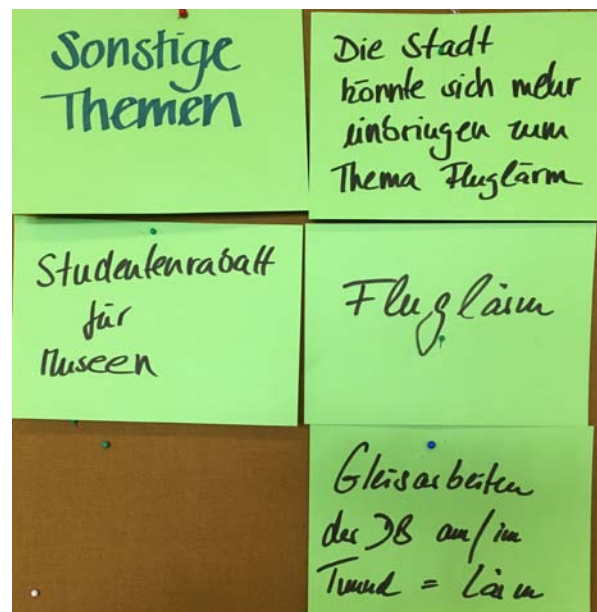 Sonstige
Themen
Die Stadt
könnte sich mehr
einbringen zum
Thema Fluglärm
Studentenrabatt
für
Museen
Fluglärm
Gleisarbeiten
der DB am/im
Tunnel = Lärm